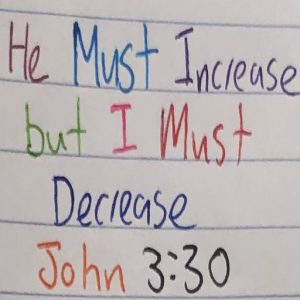 He Must Increase
but I Must
Decrease
John 3:30